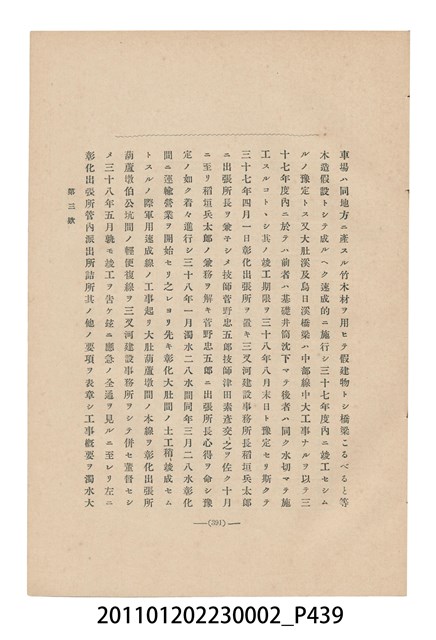 車場ハ同地方ニ產スル竹木材ヲ用ヒテ假建物トシ橋梁こるべると等
木造假設トシテ成ルヘク速成的ニ施行シ三十七年度內ニ竣工セシム
ルノ豫定トス又大肚溪及烏日溪橋梁ハ中部線中大工事ナルヲ以テ三
十七年度內ニ於テハ前者ハ基礎井筒沈下マテ後者ハ同ク水切マテ施
工スルコトヽシ其ノ竣工期限ヲ三十八年八月末日ト豫定セリ斯クテ
三十七年四月一日彰化出張所ヲ置キ三叉河建設事務所長稻垣兵太郎
ニ出張所長ヲ兼子シメ技師菅野忠五郎技師津田素彥交〻之ヲ佐ク十月
ニ至リ稻垣兵太郎ノ兼務ヲ解キ菅野忠五郎ニ出張所長心得ヲ命シ豫
定ノ如ク着々進行シ三十八年一月濁水二八水間同年三月二八水彰化
間ニ運輸營業ヲ開始セリ之レヨリ先キ彰化大肚間ノ土工稍〻竣成セム
トスルノ際軍用速成線ノ工事起リ大肚葫蘆墩間ノ本線ヲ彰化出張所
葫蘆墩伯公坑間ノ輕便複線ヲ三叉河建設事務所ヲシテ併セ董督セシ
メ三十八年五月孰モ竣工ヲ吿ケ玆ニ應急ノ全通ヲ見ルニ至レリ左ニ
彰化出張所管內派出所詰所其ノ他ノ要項ヲ表章シ工事槪要ヲ濁水大
第三欵
(391)
201101202230002_P439